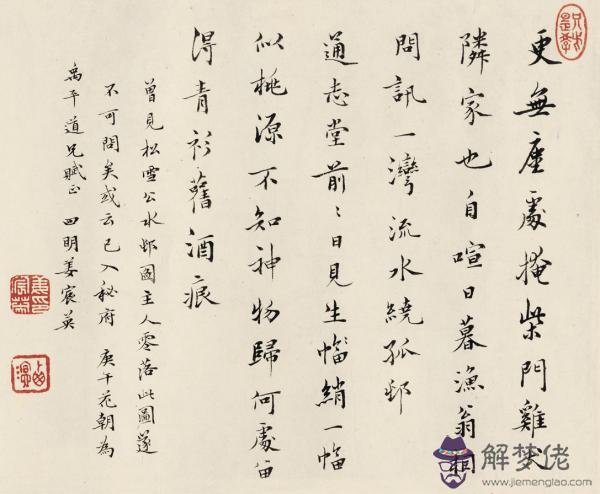 更無塵處掩柴門雞犬
隣家也自喧日暮漁翁相
問訊一灣流水繞孤邨
通志堂前〻日見生幅綃一幅
似桃源不知神物歸何處留
淂青衫舊酒痕
曾見松雪公水邨圖主人零落此圖遂
不可問矣或云已入秘府 庚午花朝為
禹平道兄賦正 四明姜宸英
解梦佬
www.jiemenglao.com